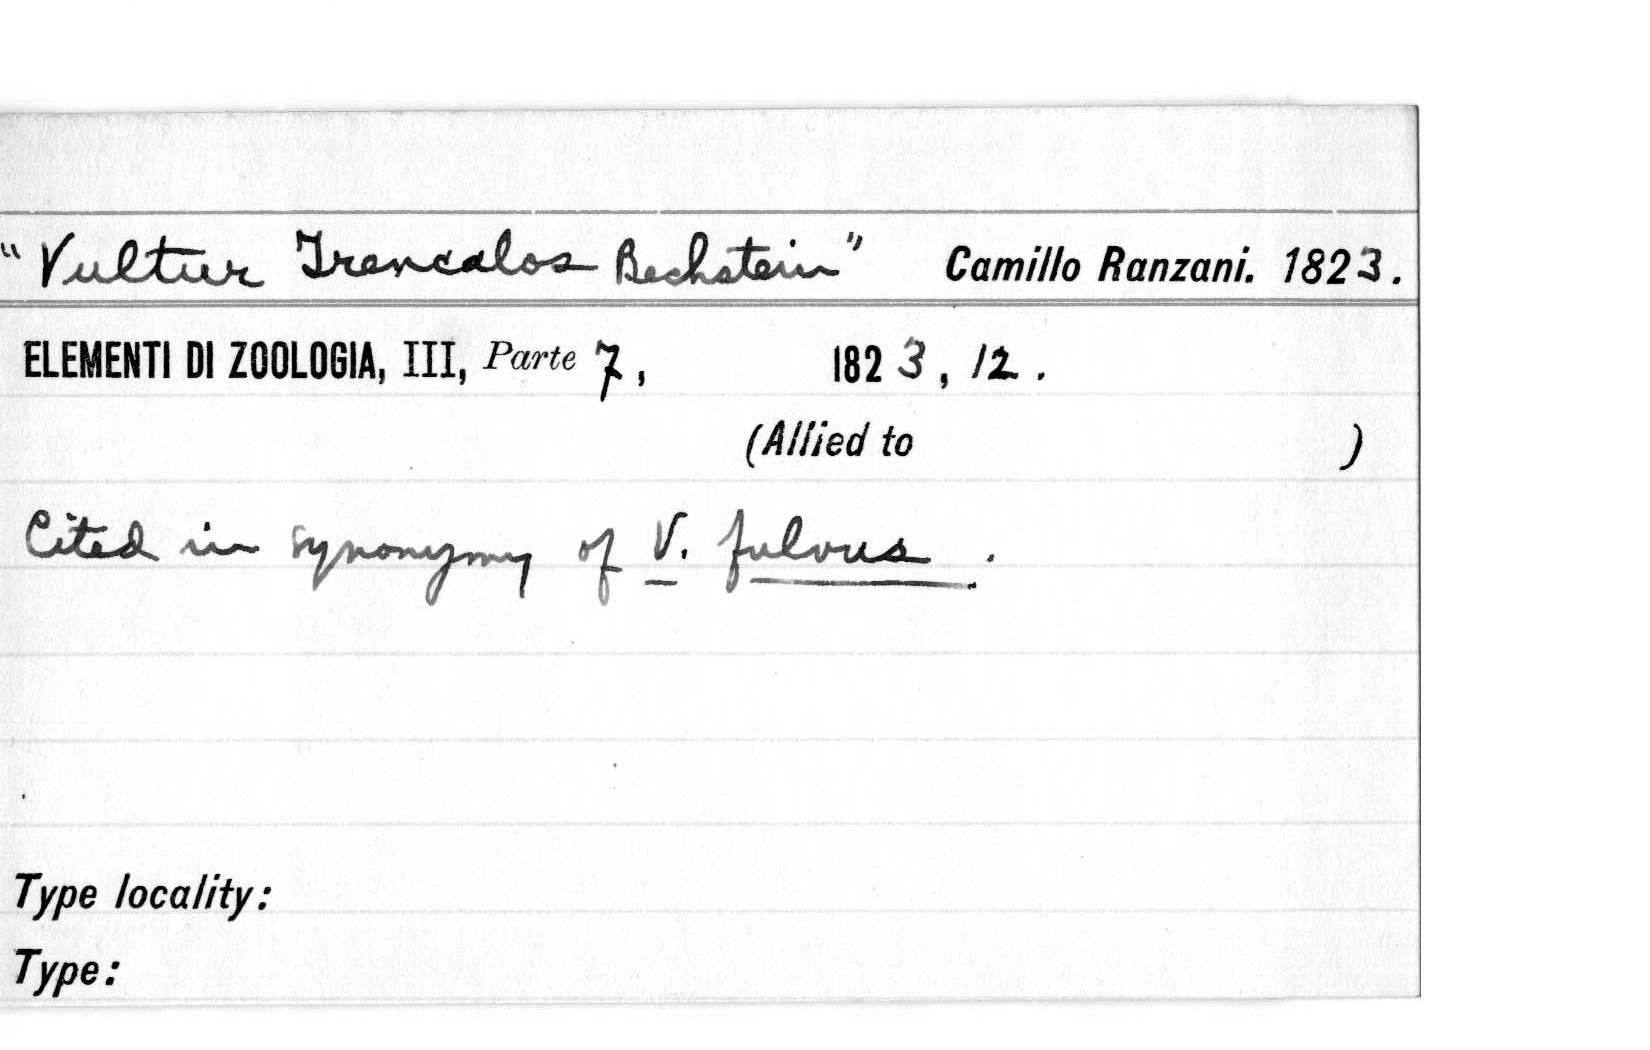 "Vultur Trencalos Bechstein" Camillo Ranzani. 1823.
ELEMENTI DI ZOOLOGIA, III, Parte 7, 1823, 12.
(Allied to )
Cited in synonymy of V. fulvus.
Type locality:
Type: